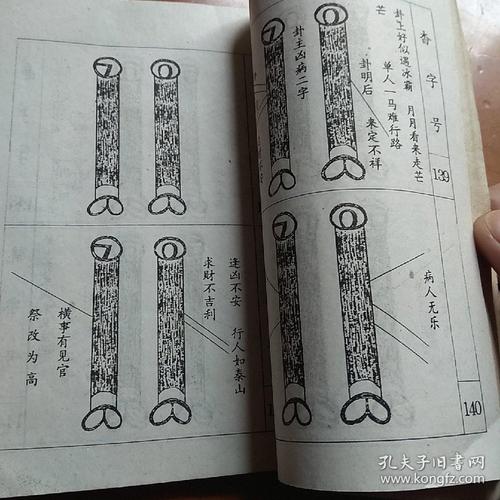 香字号
139
卦上好似遇冰霸 月月看来走芒
单人一马难行路
芒
卦明后 来定不祥
卦主凶病二字
病人无乐
140
逢凶不安 行人如泰山
求财不吉利
横事有见官
祭改为高
孔夫子旧书网
www.kongfz.com